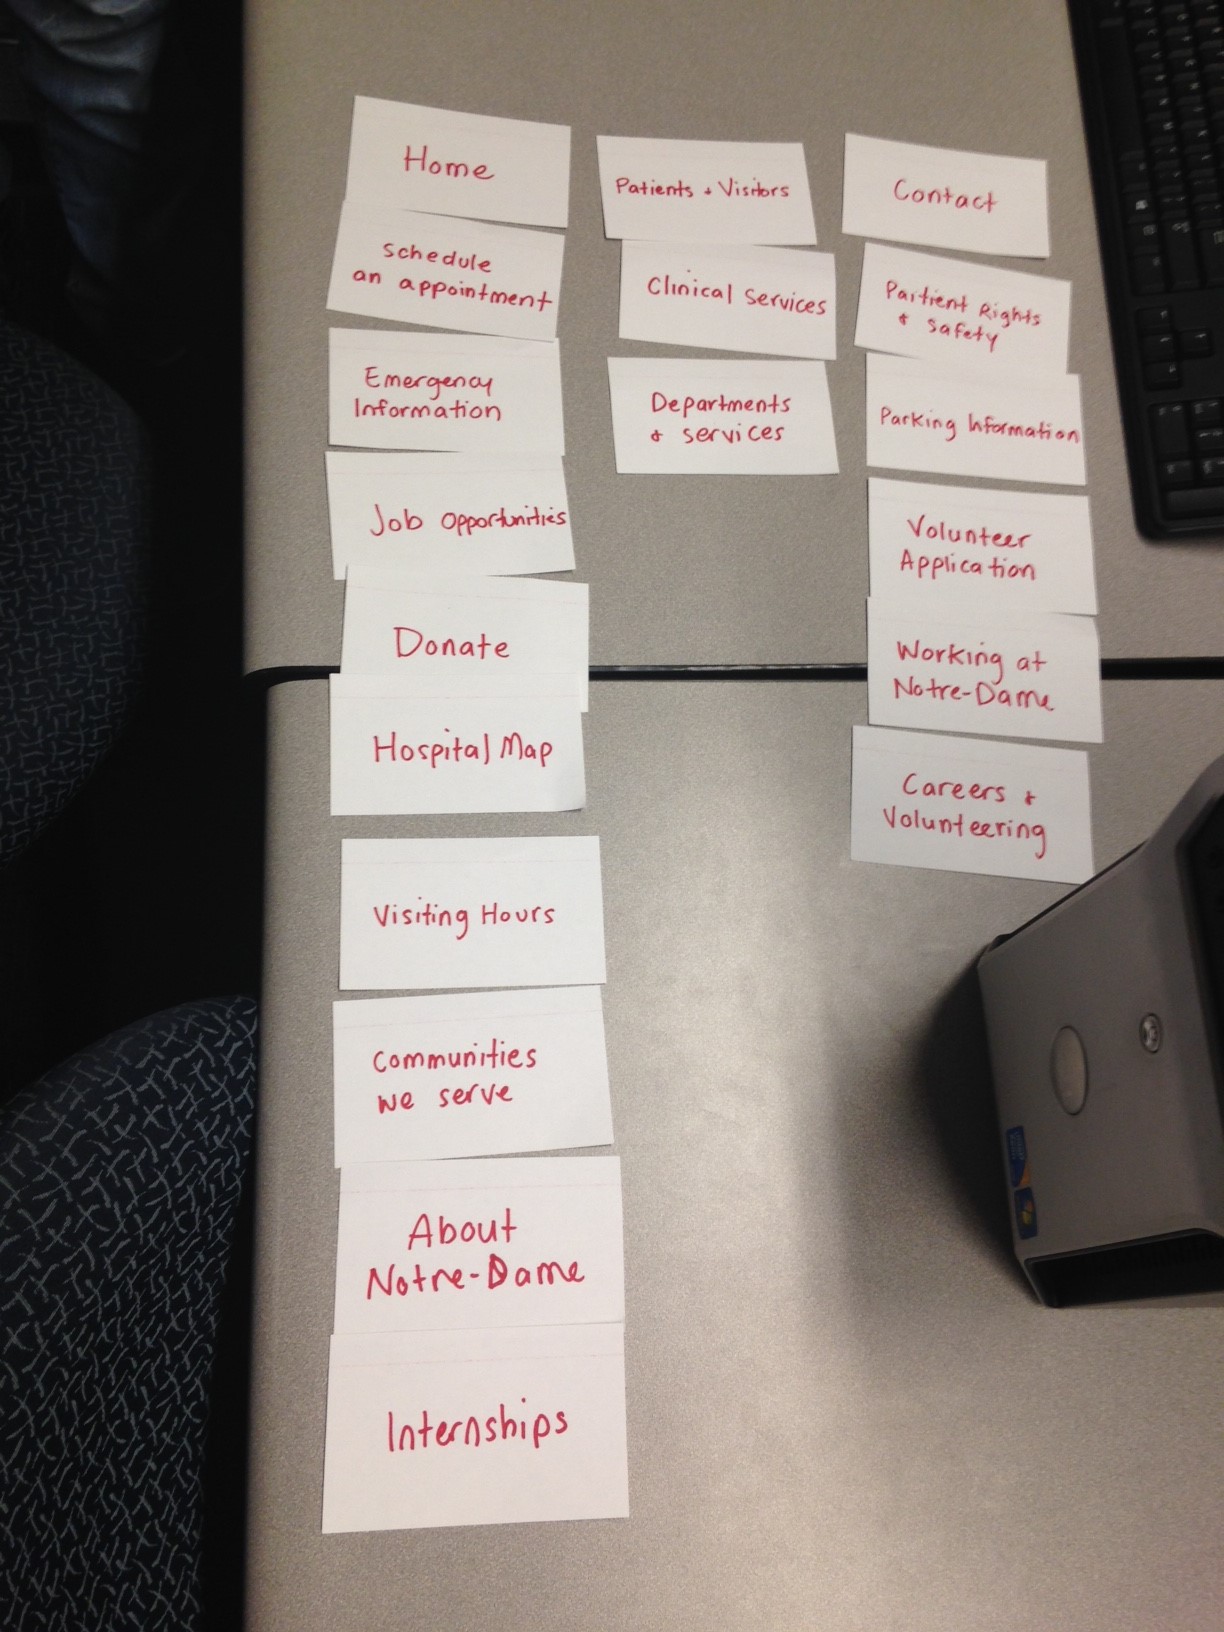 Home
Schedule
an appointment
Emergency
Information
Job Opportunities
Donate
Hospital Map
Visiting Hours
Communities
we serve
About
Notre-Dame
Internships
Patients + Visitors
Clinical Services
Departments
& services
Contact
Partient Rights
& Safety
Parking Information
Volunteer
Application
Working at
Notre-Dame
Careers &
Volunteering